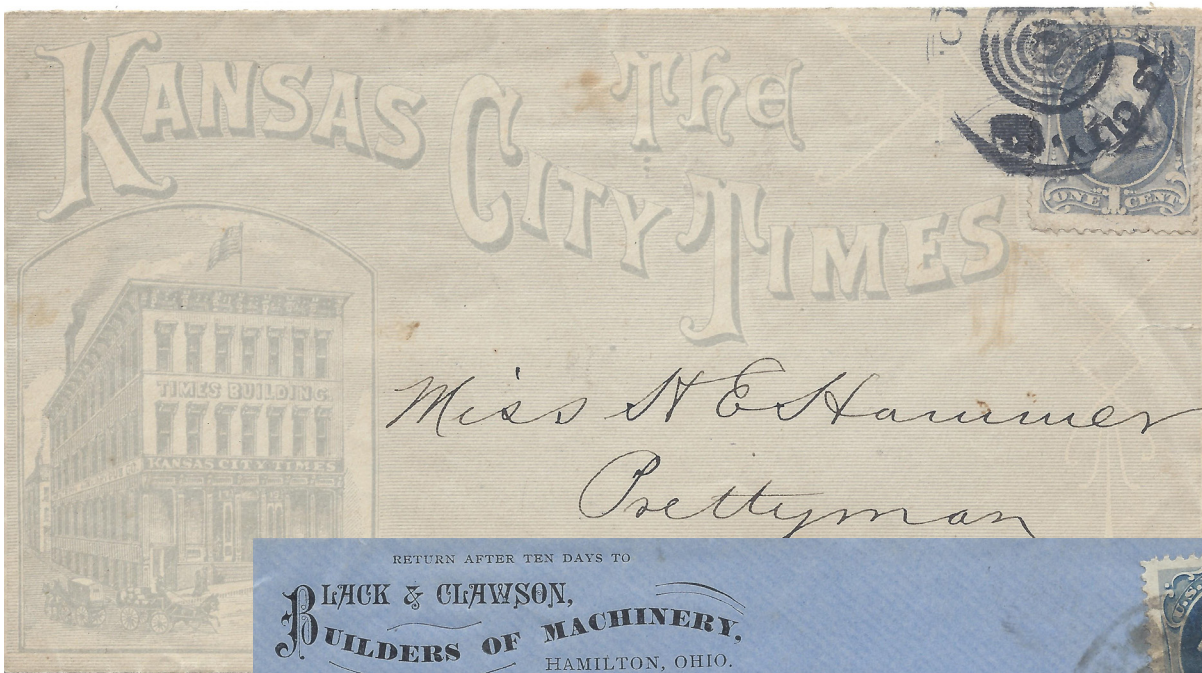 The
KANSAS CITY TIMES
CITY.
ONE 1 CENT
TIMES BUILDING
KANSAS CITY TIMES
Miss H E Hammer
Prettyman
RETURN AFTER TEN DAYS TO
BLACK & CLAWSON,
BUILDERS OF MACHINERY.
HAMILTON, OHIO.